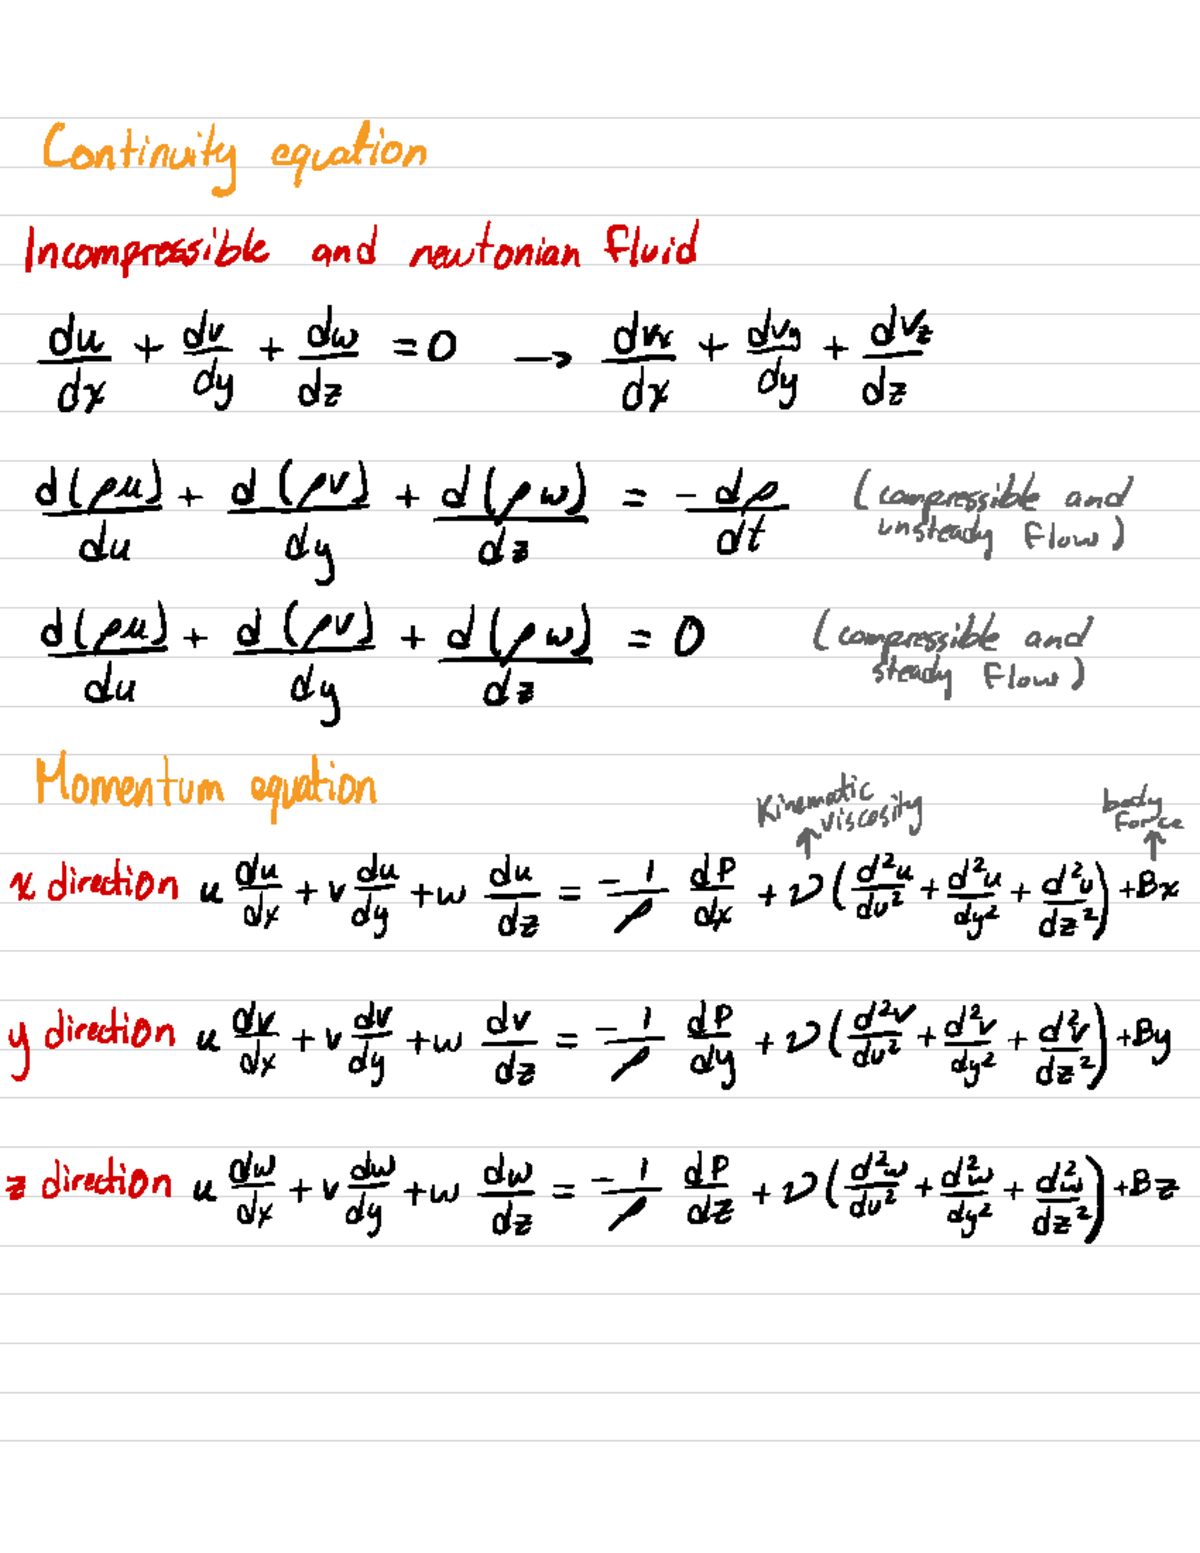 Continuity equation
Incompressible and newtonian fluid
du/dx + dv/dy + dw/dz = 0 → dvx/dx + dvy/dy + dvz/dz
d(ρu)/du + d(ρv)/dy + d(ρw)/dz = - dρ/dt (compressible and unsteady flow)
d(ρu)/du + d(ρv)/dy + d(ρw)/dz = 0 (compressible and steady flow)
Momentum equation
Kinematic viscosity
body force
x direction u du/dx + v du/dy + w du/dz = -1/ρ dP/dx + ν(d²u/du² + d²u/dy² + d²u/dz²) + Bx
y direction u dv/dx + v dv/dy + w dv/dz = -1/ρ dP/dy + ν(d²v/du² + d²v/dy² + d²v/dz²) + By
z direction u dw/dx + v dw/dy + w dw/dz = -1/ρ dP/dz + ν(d²w/du² + d²w/dy² + d²w/dz²) + Bz